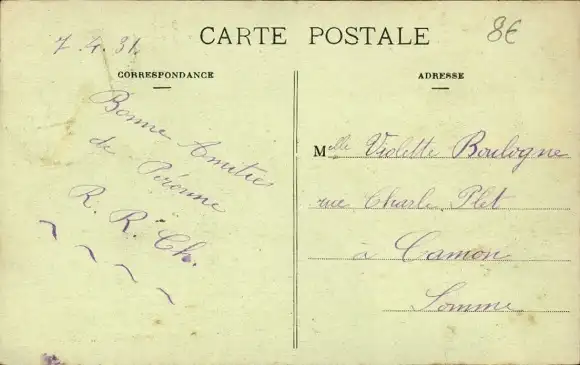 7.4.31
CARTE POSTALE
8€
CORRESPONDANCE
ADRESSE
Bonne Amitiés
de Péronne
R. R. Ch.
Melle Violette Boulogne
rue Charle Plet
à Camon
Somme